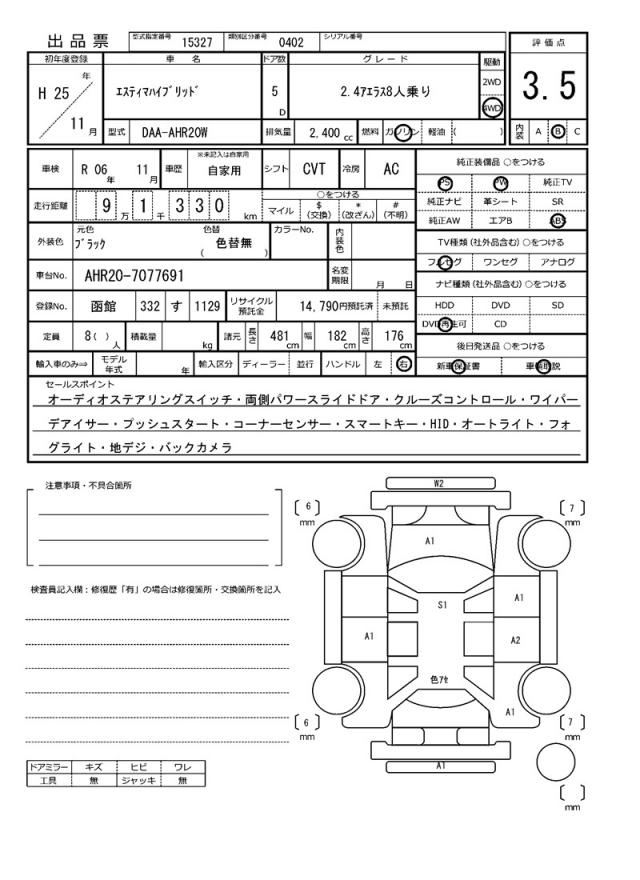 出品票 型式指定番号 15327 類別区分番号 0402 シリアル番号
評価点
3.5
初年度登録 車名 ドア数 グレード 駆動
H 25 年 11 月 エスティマハイブリッド 5 D 2.4アエラス8人乗り 2WD 4WD
型式 DAA-AHR20W 排気量 2,400 cc 燃料 ガソリン 軽油 ( ) 内装 A B C
車検 R 06 年 11 月 車歴 ※未記入は自家用 自家用 シフト CVT 冷房 AC
純正装備品 ○をつける
PS PW 純正TV
純正ナビ 革シート SR
純正AW エアB ABS
走行距離 9 万 1 千 3 3 0 km
○をつける
マイル $ (交換) * (改ざん) # (不明)
外装色 元色 ブラック 色替 ( 色替無 ) カラーNo. 内装色
TV種類 (社外品含む) ○をつける
フルセグ ワンセグ アナログ
車台No. AHR20-7077691 名変期限 月 日
ナビ種類 (社外品含む) ○をつける
HDD DVD SD
DVD再生可 CD
登録No. 函館 332 す 1129 リサイクル預託金 14,790円預託済 未預託
定員 8( ) 人 積載量 kg 諸元 長さ 481 cm 幅 182 cm 高さ 176 cm
後日発送品 ○をつける
新車保証書 車輌取説
輸入車のみ⇒ モデル年式 年 輸入区分 ディーラー 並行 ハンドル 左 右
セールスポイント
オーディオステアリングスイッチ・両側パワースライドドア・クルーズコントロール・ワイパー
デアイサー・プッシュスタート・コーナーセンサー・スマートキー・HID・オートライト・フォ
グライト・地デジ・バックカメラ
注意事項・不具合箇所
検査員記入欄：修復歴「有」の場合は修復箇所・交換箇所を記入
W2
6 mm
7 mm
A1
S1
A1
A1
A2
色アセ
A1
6 mm
7 mm
A1
mm
ドアミラー キズ ヒビ ワレ
工具 無 ジャッキ 無